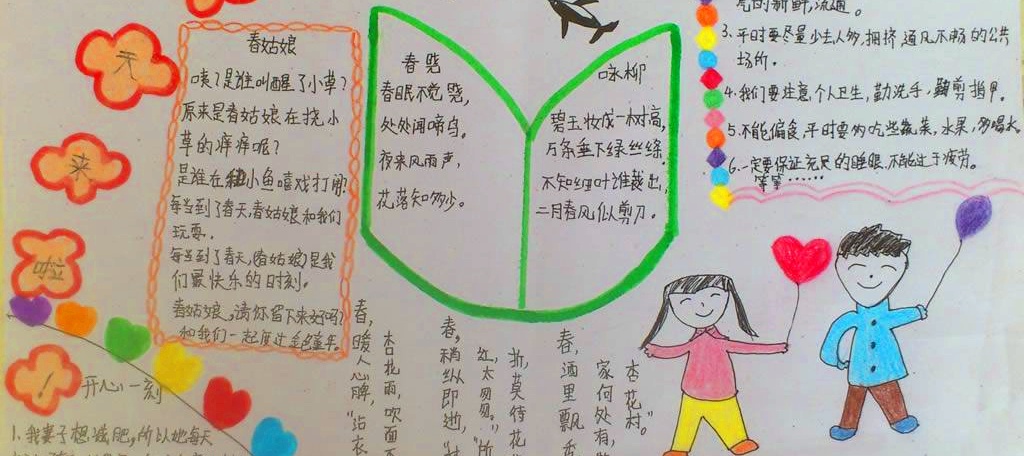 天
来
啦
！
春姑娘
咦?是谁叫醒了小草?
原来是春姑娘在挠小
草的痒痒呢?
是谁在和小鱼嘻戏打闹?
每当到了春天,春姑娘和我们
玩耍.
每当到了春天,(春姑娘)是我
们最快乐的时刻.
春姑娘,请你留下来好吗?
和我们一起度过
春晓
春眠不觉晓,
处处闻啼鸟。
夜来风雨声,
花落知多少。
咏柳
碧玉妆成一树高,
万条垂下绿丝绦.
不知细叶谁裁出,
二月春风似剪刀.
亮的新鲜,流通。
3.平时要尽量少去人多,拥挤,通风不畅的公共
场所.
4.我们要注意,个人卫生,勤洗手,剪指甲.
5.不能偏食,平时要多吃些蔬菜,水果,多喝水
6.一定要保证充足的睡眠,不能过于疲劳。
等等……
开心一刻
1.我妻子想减肥,所以她每天
春,暖人心脾,"沾衣
杏花雨,吹面不
春,稍纵即逝,
红太匆匆。"
折,莫待花
春,酒里飘香
家何处有,
杏花村。"